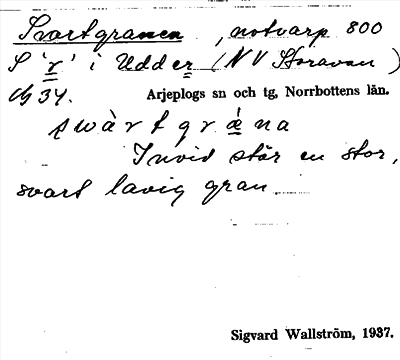 Svartgranen, notvarp 800
S 'r' i Udder (NV Storavan)
Arjeplogs sn och tg, Norrbottens län.
swàrtgrǽna
Invid står en stor,
svart lavig gran
Sigvard Wallström, 1937.